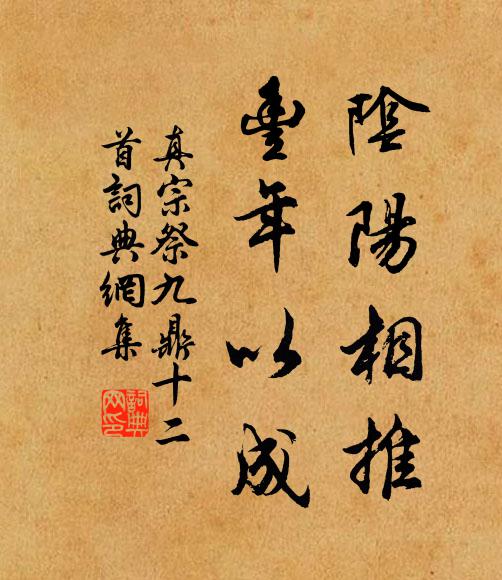 陰陽相推
豐年以成
真宗祭九鼎十二
首詞典網集
詞典
网印